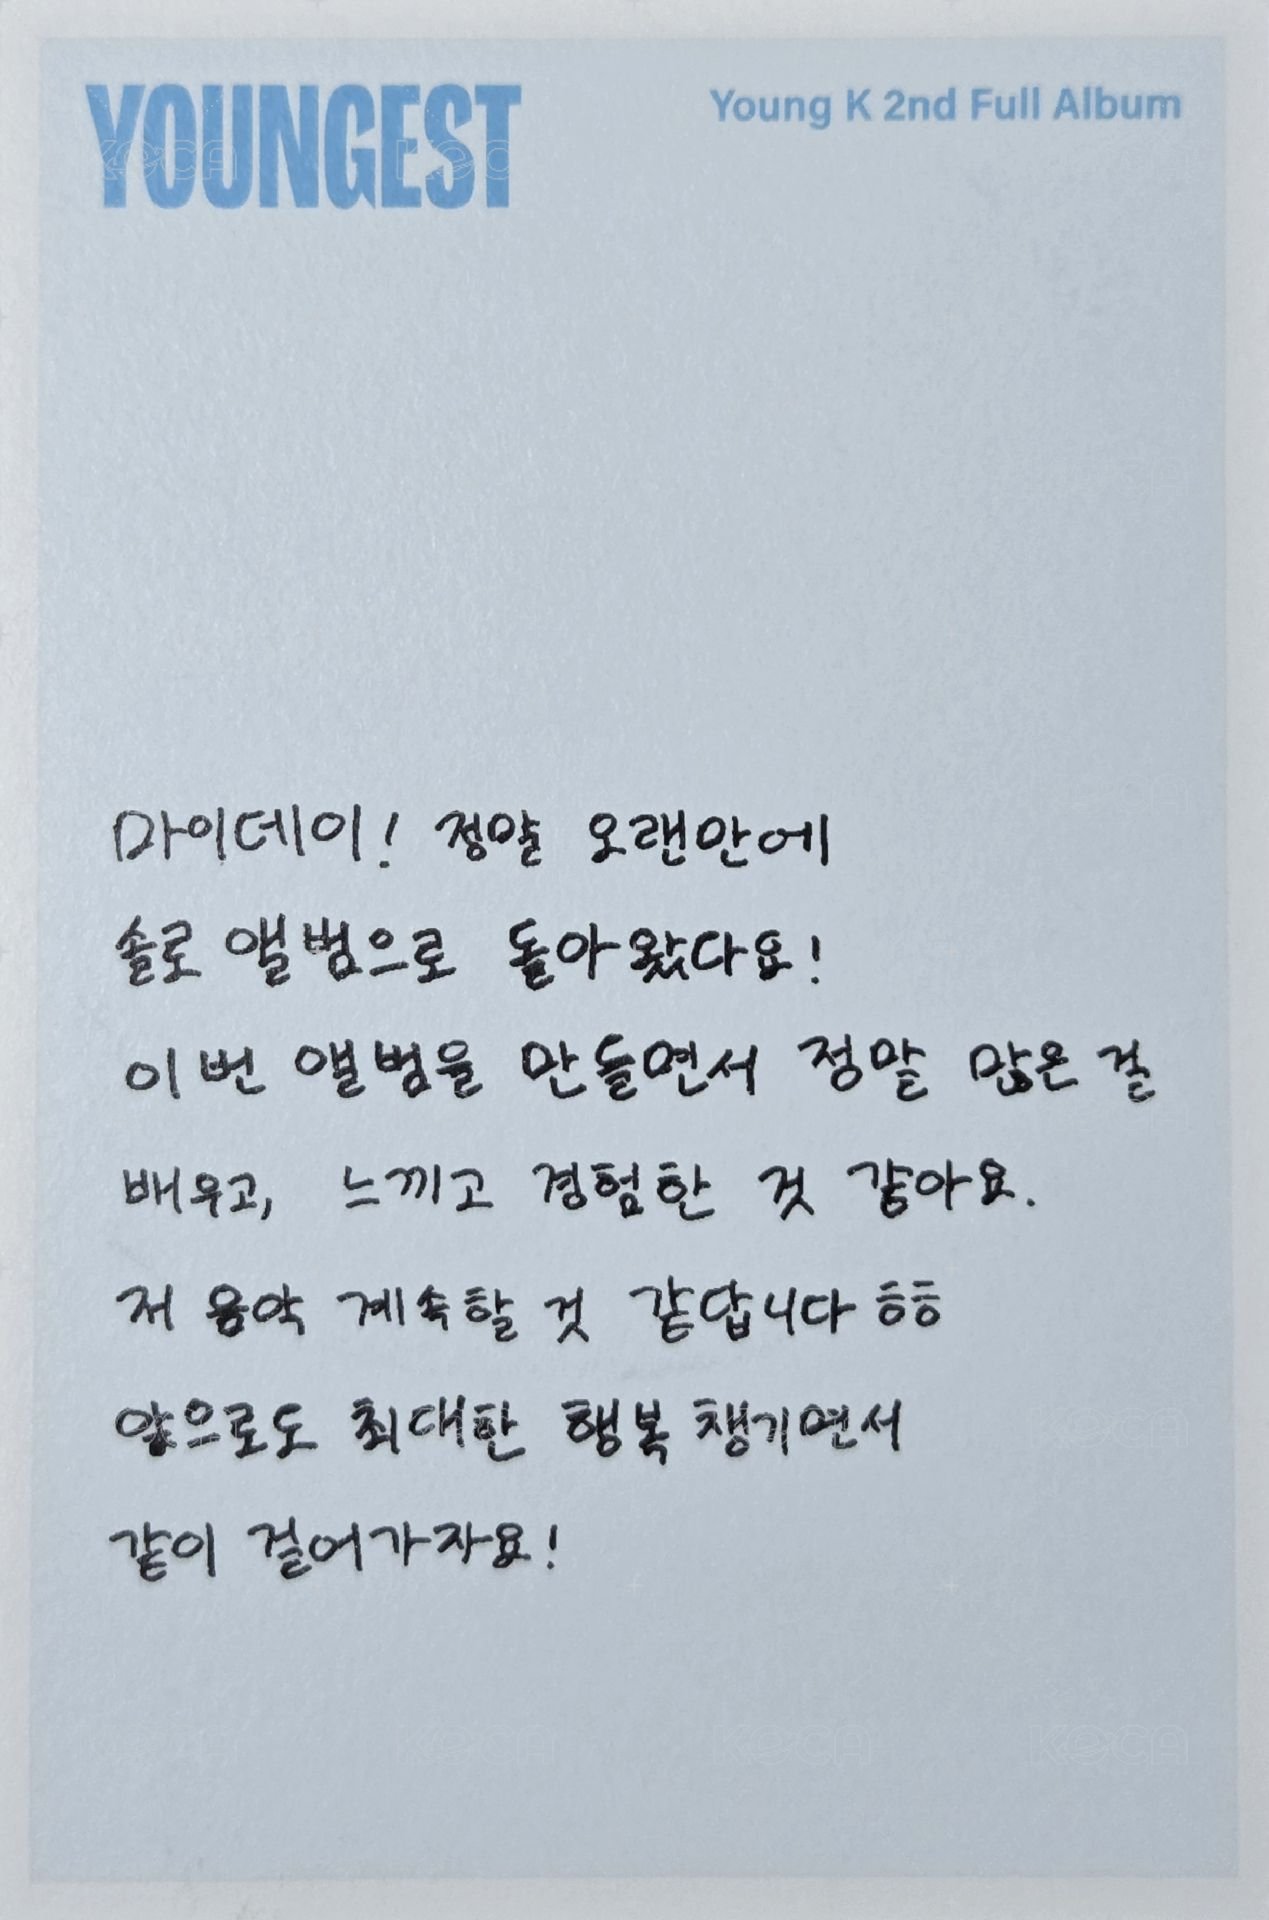 YOUNGEST
Young K 2nd Full Album
마이데이! 정말 오랜만에
솔로 앨범으로 돌아왔다요!
이번 앨범을 만들면서 정말 많은 걸
배우고, 느끼고 경험한 것 같아요.
저 음악 계속할 것 같답니다 ㅎㅎ
앞으로도 최대한 행복 챙기면서
같이 걸어가자요!
KECA KECA KECA